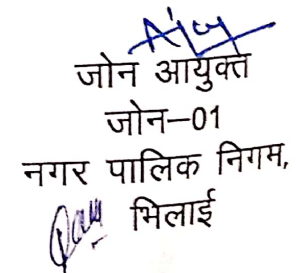 जोन आयुक्त
जोन–01
नगर पालिक निगम,
भिलाई